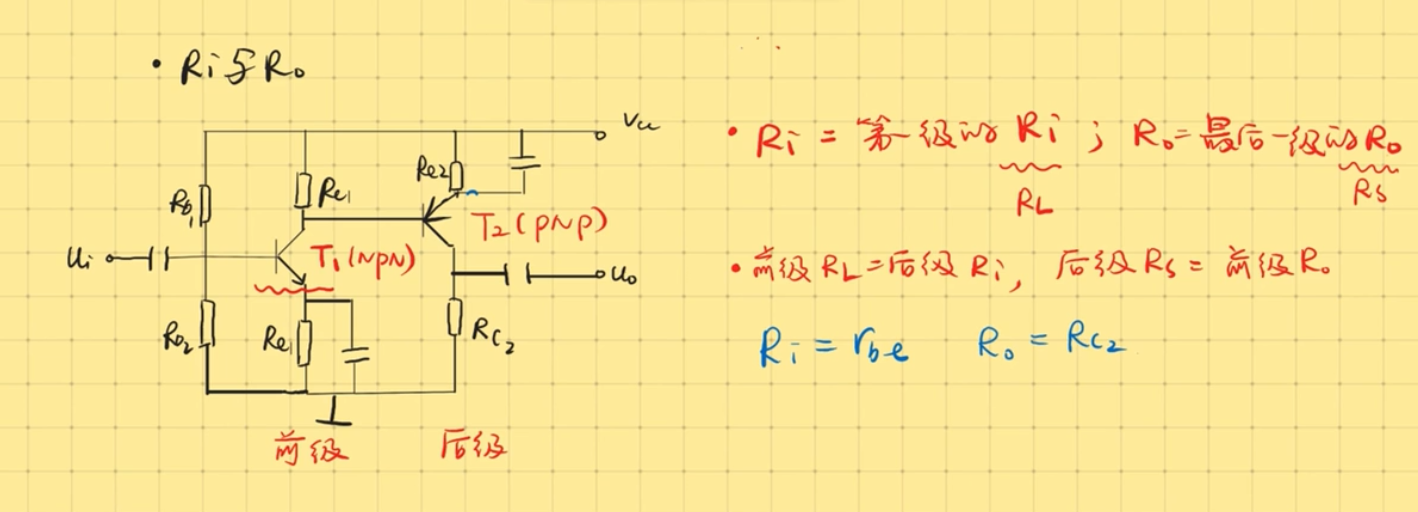 • Ri与Ro
Vcc
Rb1
Rc1
Re2
T2(PNP)
Ui
T1(NPN)
Uo
Rb2
Re1
Rc2
前级
后级
• Ri = 第一级的 Ri ; Ro = 最后一级的Ro
RL
Rs
• 前级 RL = 后级 Ri, 后级 Rs = 前级 Ro
Ri = rbe Ro = Rc2